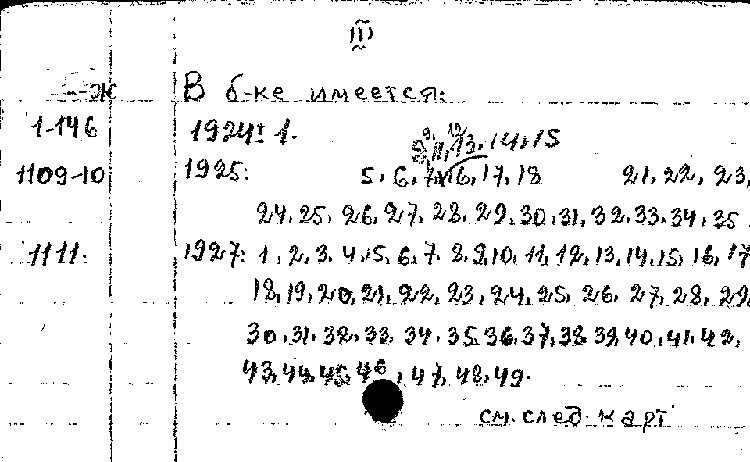 III
-Ж В б-ке имеется:
1-146 1924: 1.
8, 9, 11, 12, 13, 14, 15
1109-10 1925: 5, 6, 7, 16, 17, 18 21, 22, 23,
24, 25, 26, 27, 28, 29, 30, 31, 32, 33, 34, 35
1111. 1927: 1, 2, 3, 4, 5, 6, 7, 8, 9, 10, 11, 12, 13, 14, 15, 16, 17
18, 19, 20, 21, 22, 23, 24, 25, 26, 27, 28, 29
30, 31, 32, 33, 34, 35, 36, 37, 38, 39, 40, 41, 42,
43, 44, 45, 46, 47, 48, 49.
см. след. карт